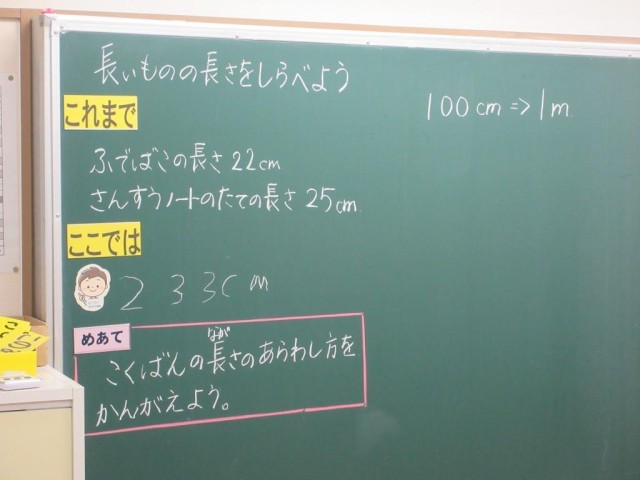 長いものの長さをしらべよう
これまで
ふでばこの長さ22cm
さんすうノートのたての長さ25cm
ここでは
233cm
めあて
こくばんの長さのあらわし方を
なが
かんがえよう。
100cm⇒1m